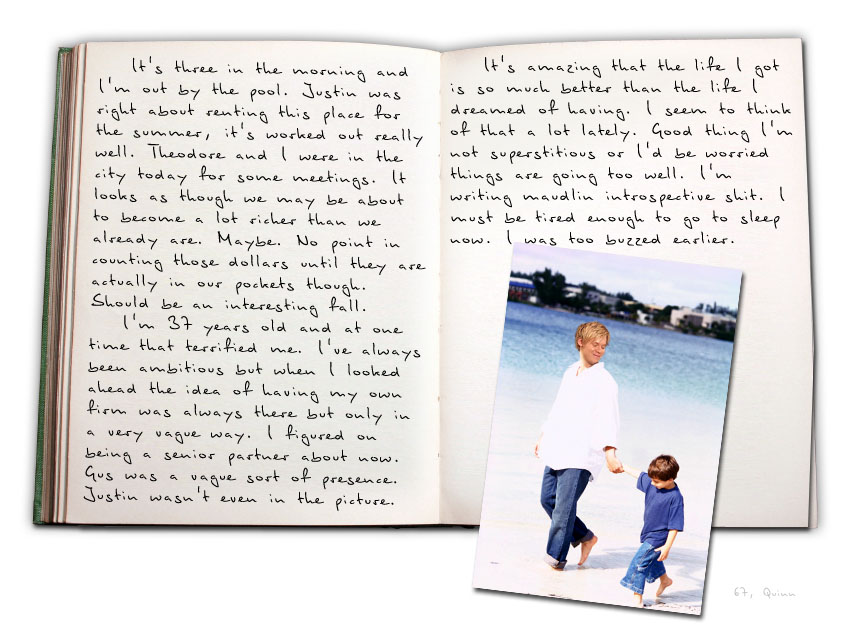 It's three in the morning and
I'm out by the pool. Justin was
right about renting this place for
the summer, it's worked out really
well. Theodore and I were in the
city today for some meetings. It
looks as though we may be about
to become a lot richer than we
already are. Maybe. No point in
counting those dollars until they are
actually in our pockets though.
Should be an interesting fall.
I'm 37 years old and at one
time that terrified me. I've always
been ambitious but when I looked
ahead the idea of having my own
firm was always there but only in
a very vague way. I figured on
being a senior partner about now.
Gus was a vague sort of presence.
Justin wasn't even in the picture.
It's amazing that the life I got
is so much better than the life I
dreamed of having. I seem to think
of that a lot lately. Good thing I'm
not superstitious or I'd be worried
things are going too well. I'm
writing maudlin introspective shit. I
must be tired enough to go to sleep
now. I was too buzzed earlier.
67, Quinn